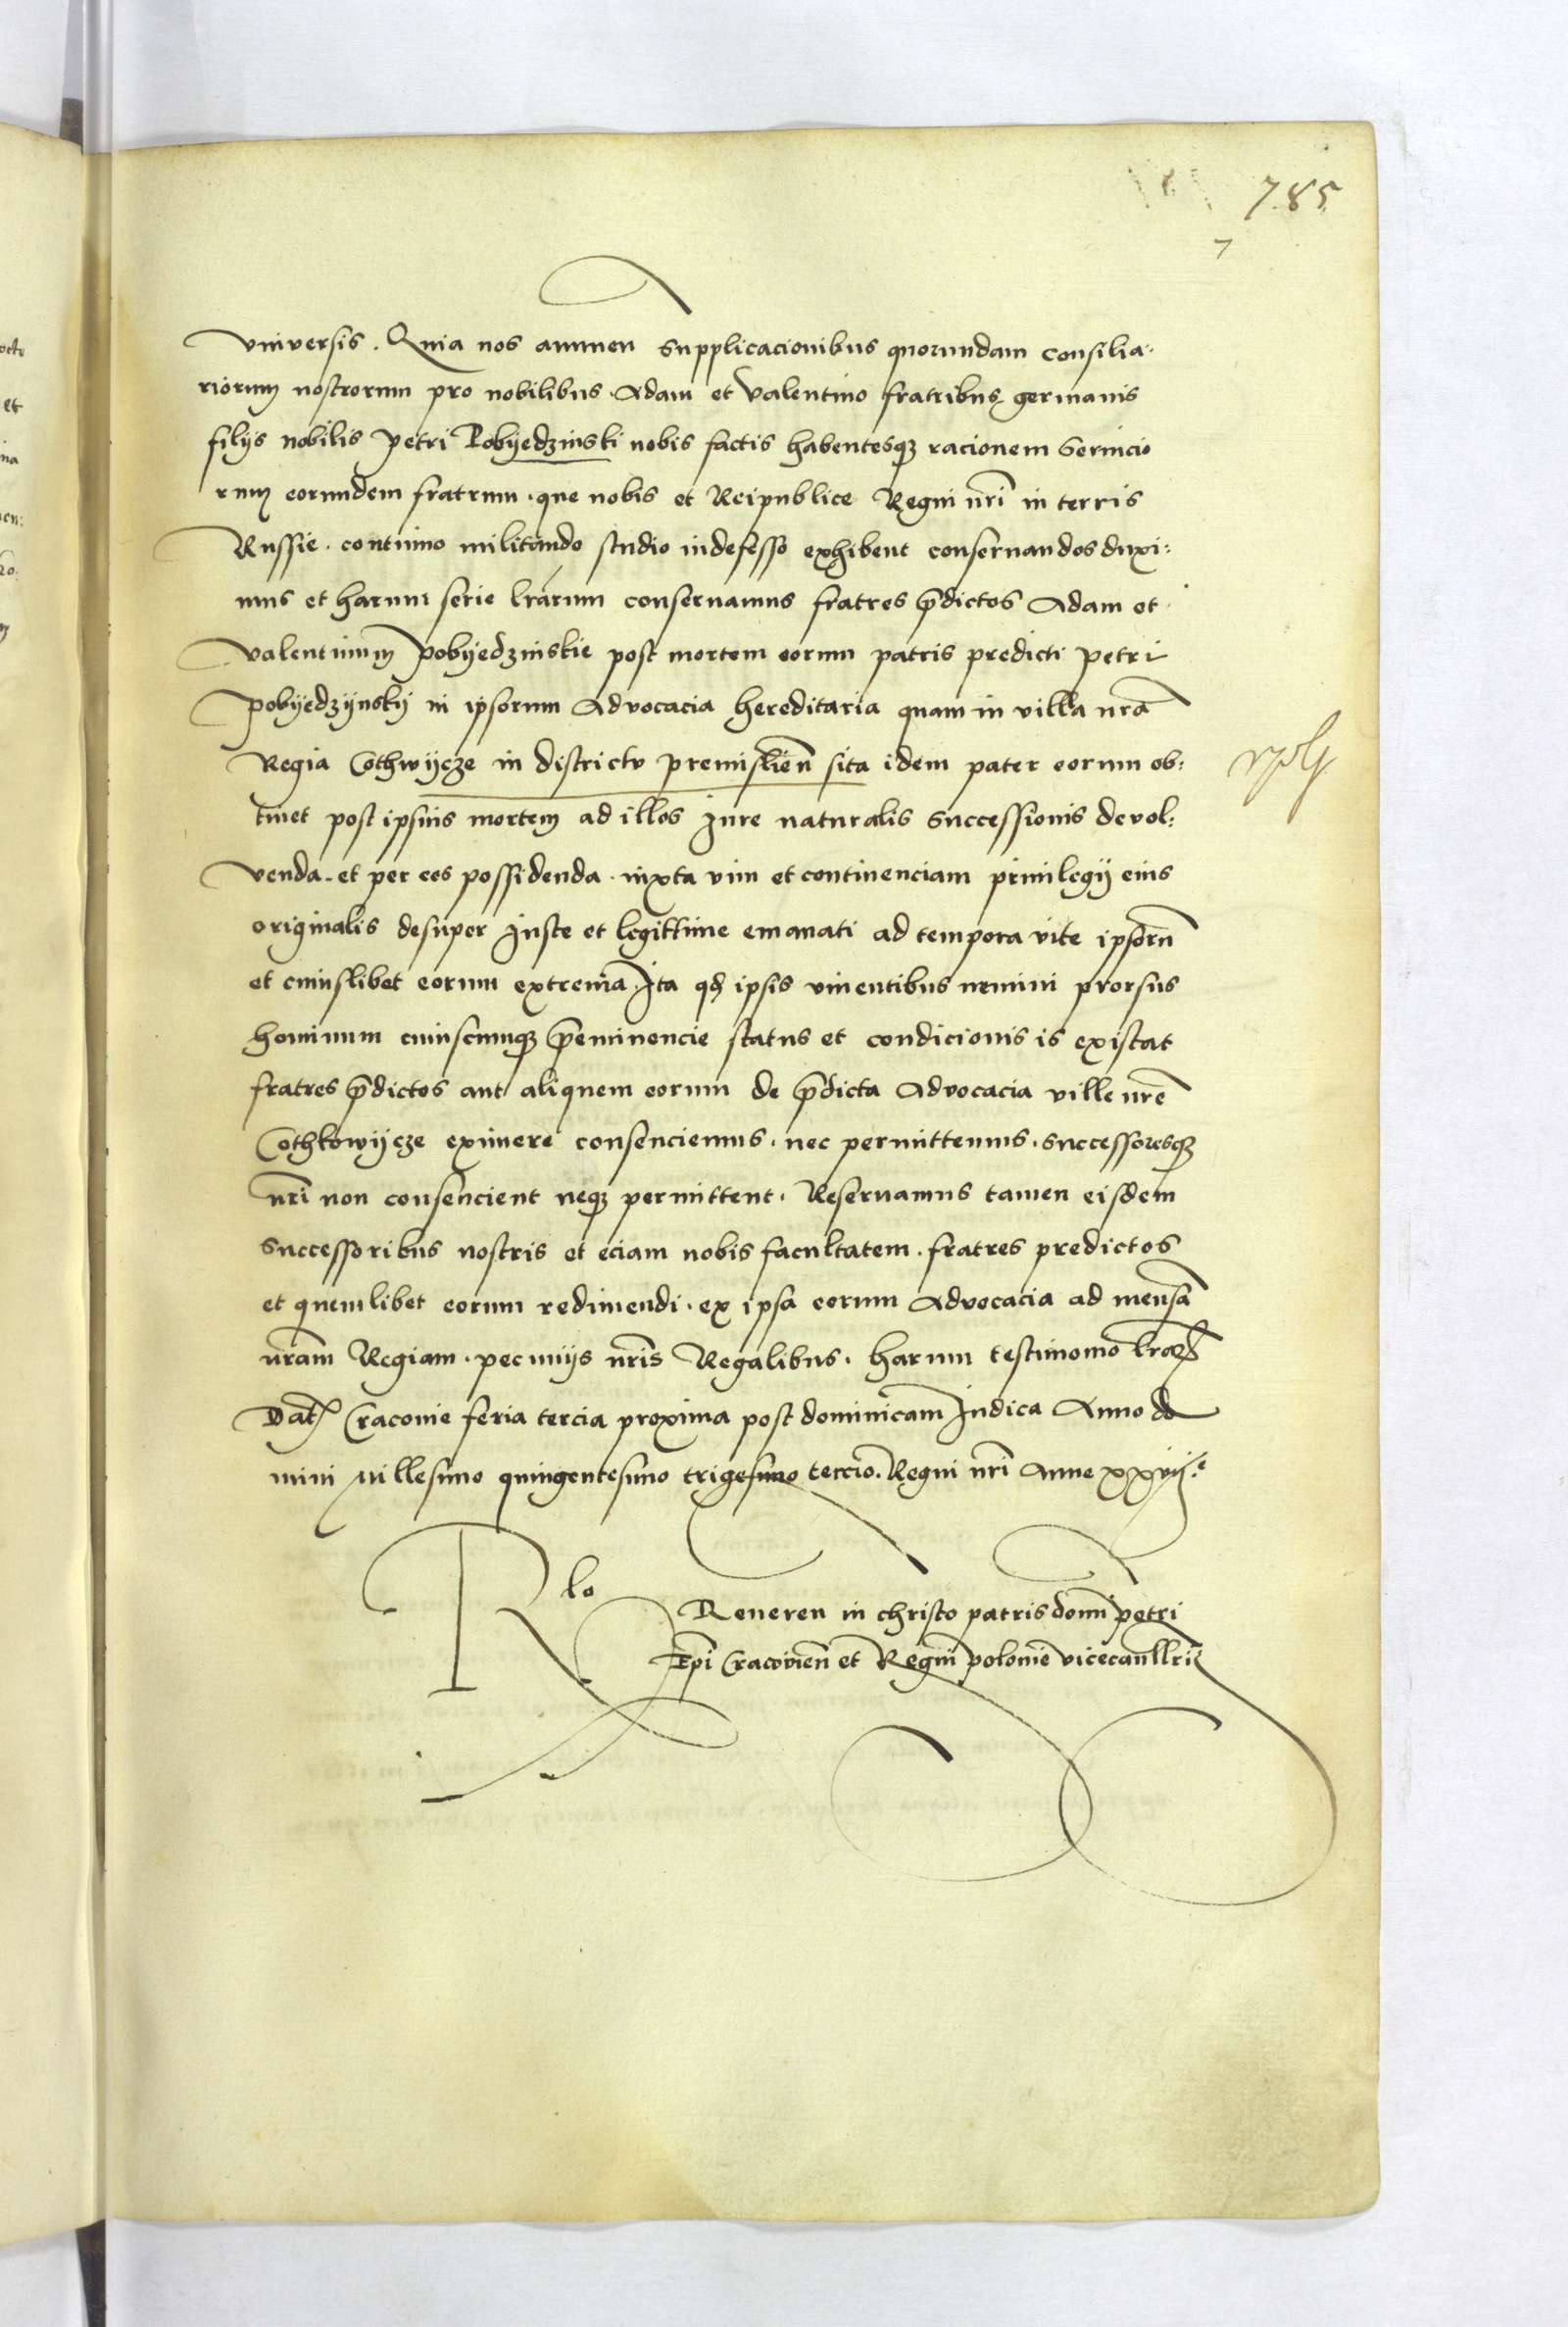 785
7
vniversis. Quia nos annuen supplicacionibus quorundam consilia-
riorum nostrorum pro nobilibus Adam et Valentino fratribus germanis
filijs nobilis Petri Pobyedzinski nobis factis habentesq3 racionem servicio
rum eorundem fratrum. que nobis et Reipublice Regni nri in terris
Russie. continuo militando studio indefesso exhibent conservandos duxi:
mus et harum serie lrarum conservamus fratres pdictos Adam et
Valentinum Pobyedzinskie post mortem eorum patris predicti Petri
Pobyedzijnskij in ipsorum Advocacia hereditaria quam in villa nra
Regia Cothwijcze in districtu premislien sita idem pater eorum ob:
tinet post ipsius mortem ad illos Jure naturalis successionis devol:
venda. et per eos possidenda. iuxta vim et continenciam privilegij eius
originalis desuper Juste et legittime emanati ad tempora vite ipsoru
et cuiuslibet eorum extrema. Ita qd ipsis viventibus nemini prorsus
hominum cuiuscunq3 peminencie status et condicionis is existat
fratres pdictos aut aliquem eorum de pdicta Advocacia ville nre
Cothkowijcze eximere consenciemus. nec permittemus. successoresq3
nri non consencient neq3 permittent. Reservamus tamen eisdem
successoribus nostris et eciam nobis facultatem. fratres predictos
et quemlibet eorum redimendi. ex ipsa eorum Advocacia ad mensa
nram Regiam. pecunijs nris Regalibus. harum testimonio lrar
Dat Cracovie feria tercia proxima post dominicam Judica Anno do
mini Millesimo quingentesimo trigesimo tercio. Regni nri Anno xxvij
Rlo Reveren in christo patris domi petri
Epi Cracovien et Regni polonie vicecancllrij